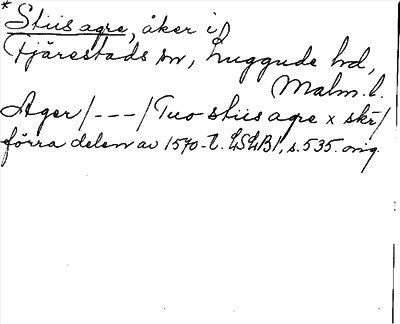 * Stiis agre, åker i
Fjärestads sn, Luggude hd,
Malm. l.
Ager/---/Tuo stiis agre x skr/
förra delen av 1570-t. LSLB1, s. 535. orig.